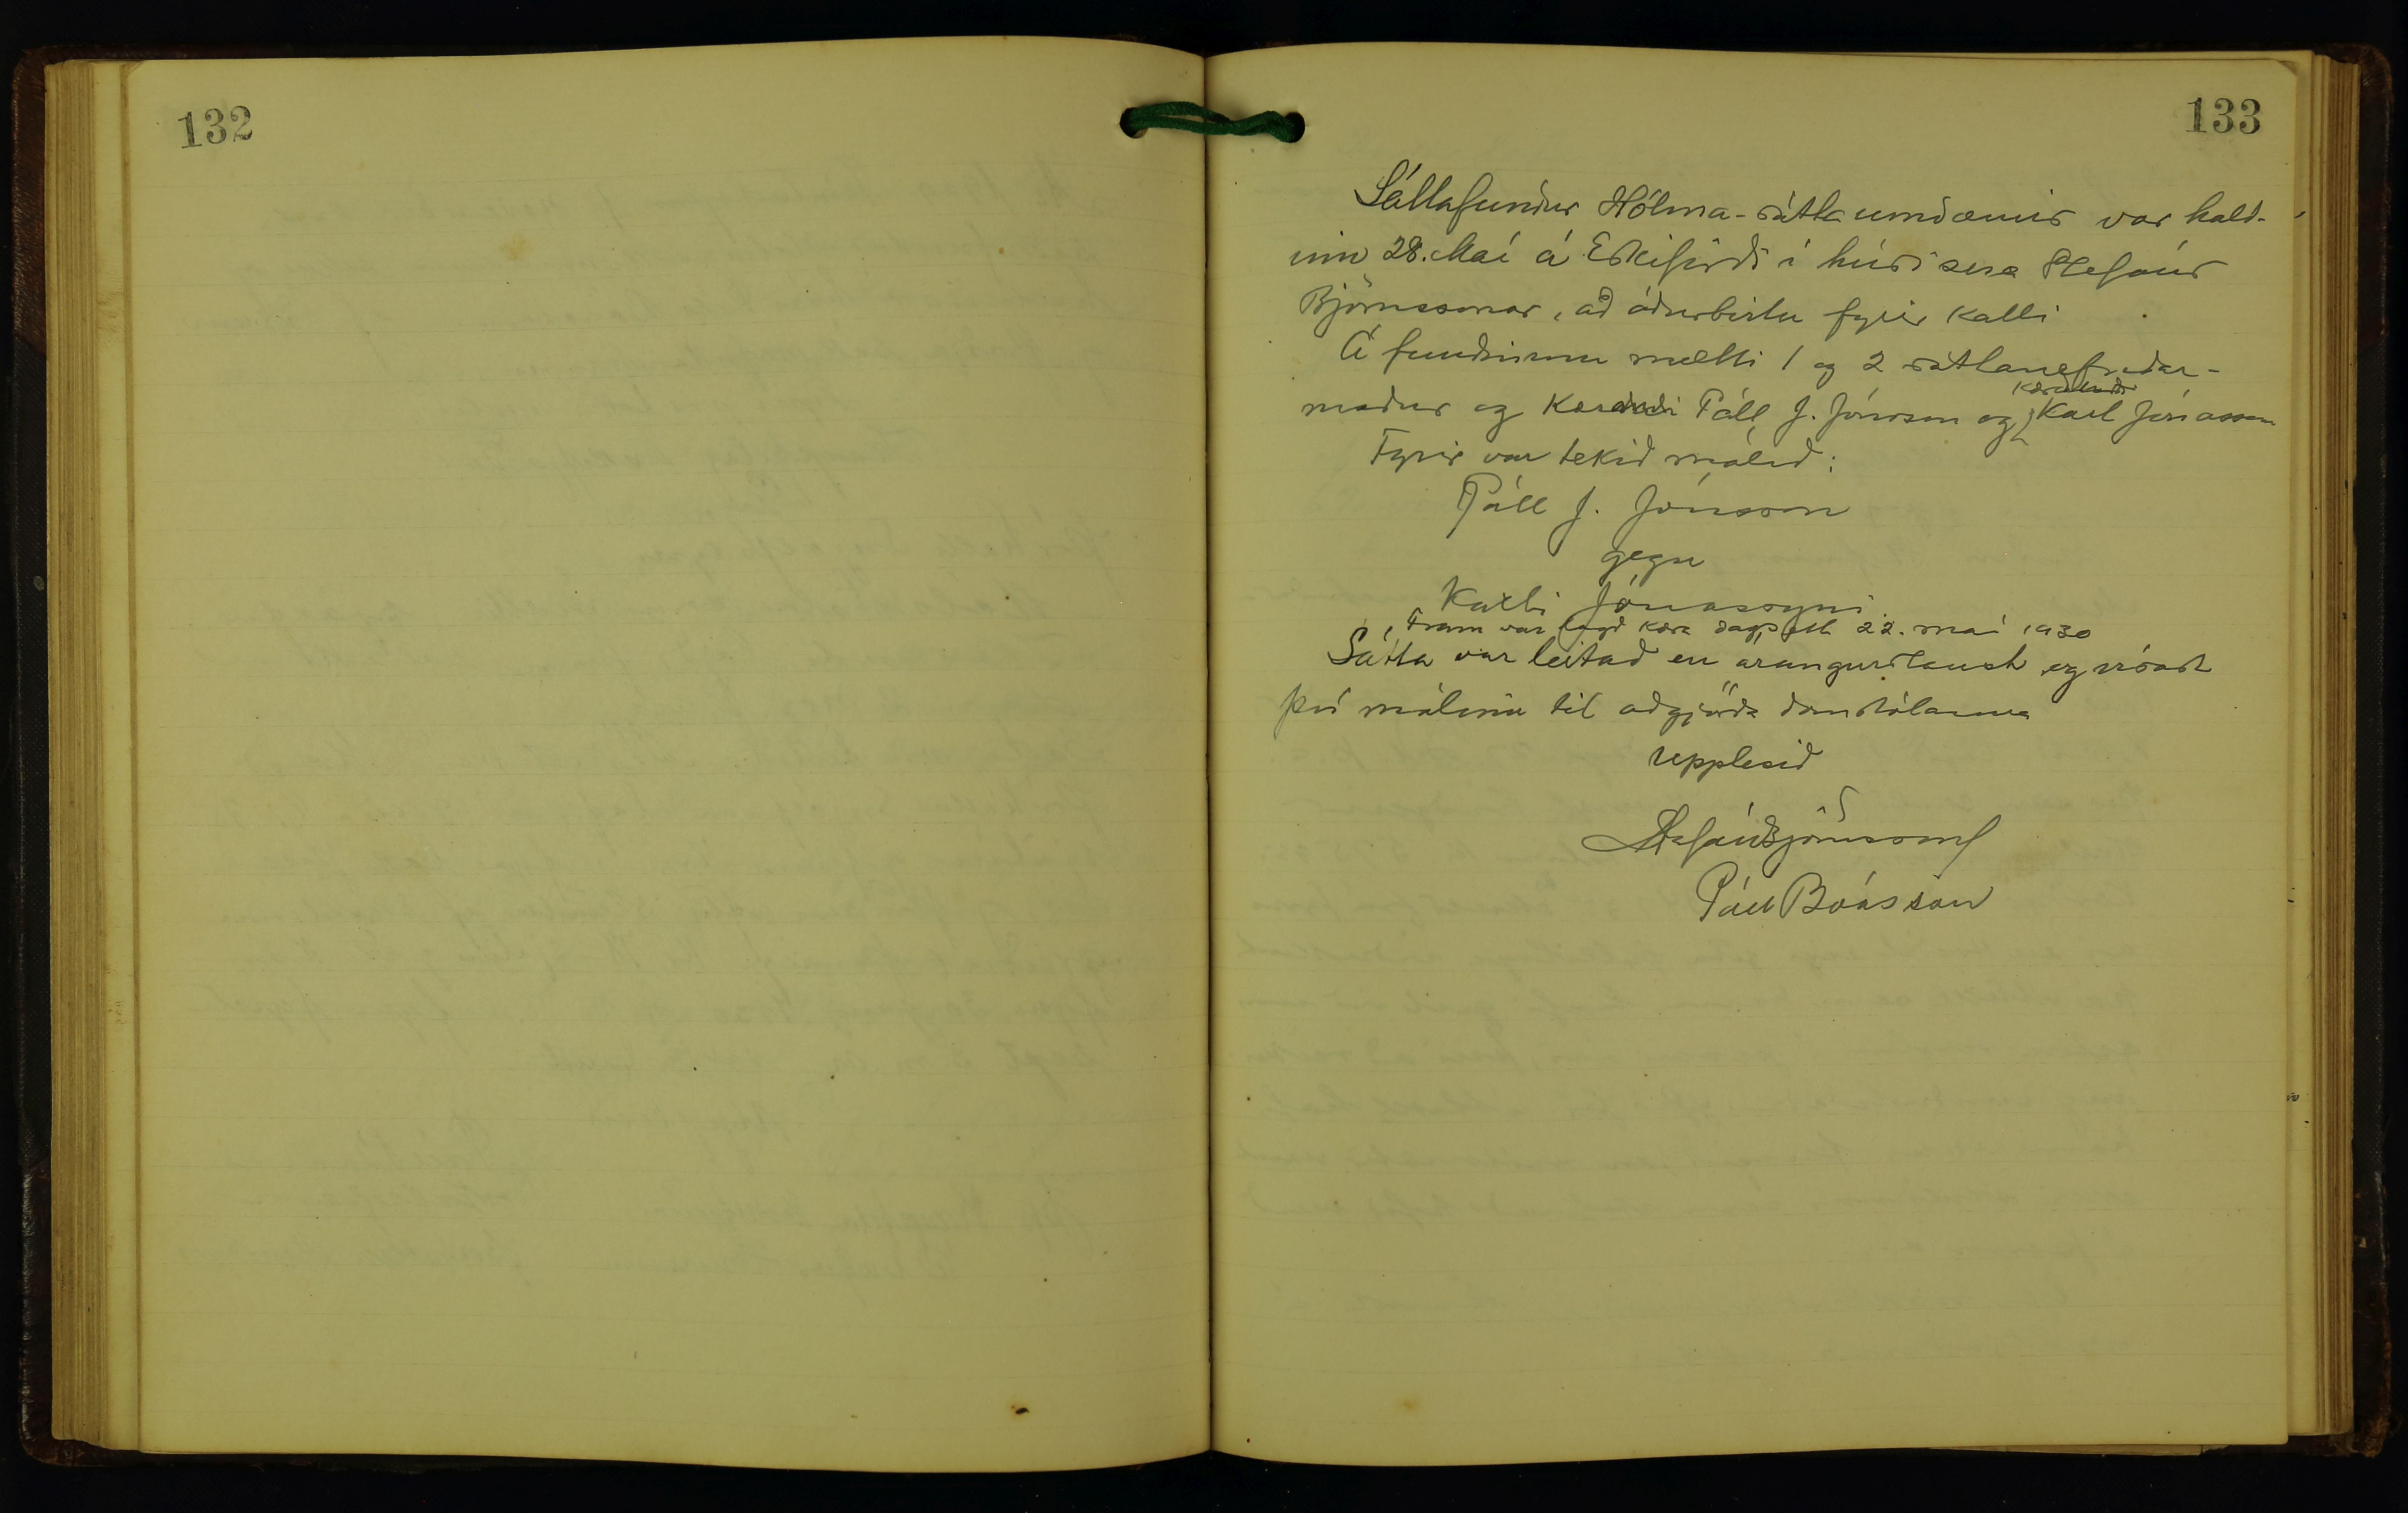 132
133
Sáttafundur Hólma-sáttaumdæmis var hald-
inn 28. Maí á Eskifirði í húsi sera Stefáns
Björnssonar, að áðurbirtu fyrir kalli
Á fundinum mætti 1 og 2 sáttanefndar-
maður og Kærandi Páll J. Jónsson og kærðandi Karl Jónasson
Fyrir var tekið málið:
Páll J. Jónsson
gegn
Karli Jónassyni.
Fram var lagð kæra dags ett 22. maí 1930
Sátta var leitað en árangurslaust og vísast
því málinu til aðgjörða dómstólanna
Upplesið
Stefán Björnsson
Páll Bóasson